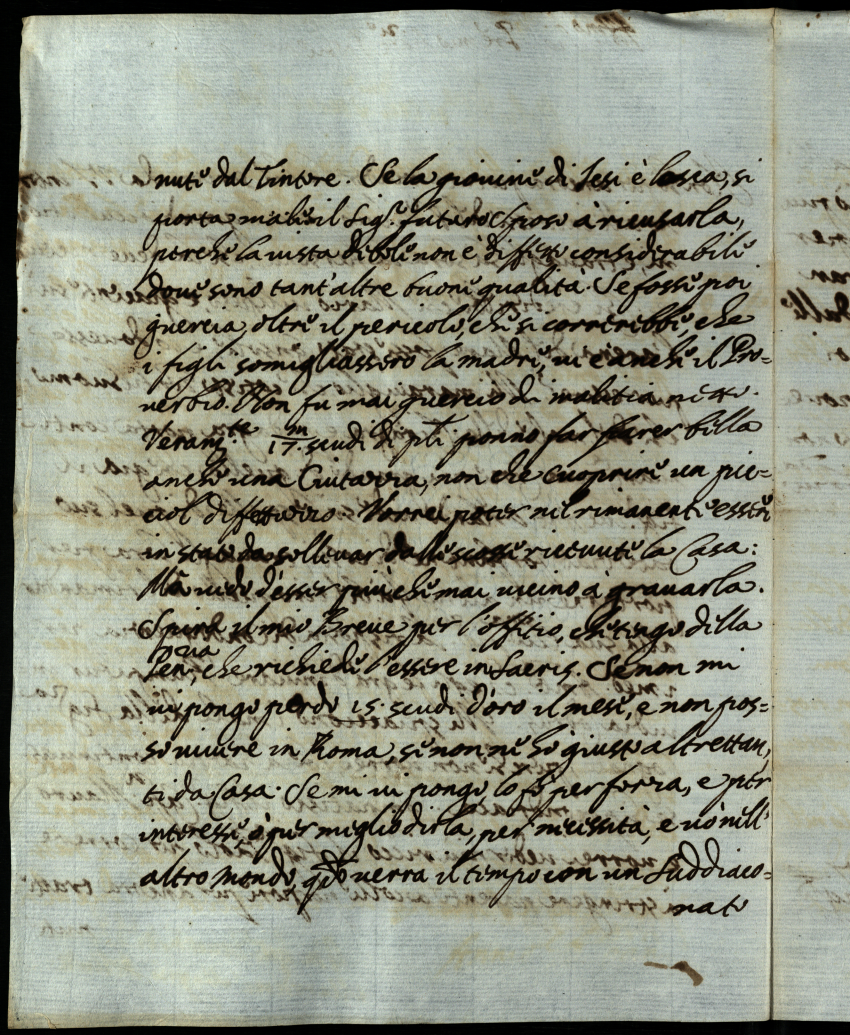 nute dal Tintore. Se la giovine di Iesi è losca, si
porta male il Sig.r futuro sposo à ricusarla,
perche la vista debole non è diffetto considerabile
dove sono tant'altre buone qualità. Se fosse poi
guercia, oltre il pericolo che si correrebbe che
i figli somigliassero la madre, vi è anche il Pro=
verbio. Non fu mai guercio di malitia netto.
Veram.te 17.m scudi di pti ponno far parer bella
anche una Civetta, non che cuoprire un pic=
ciol diffettuzzo. Vorrei poter nel rimanente essere
in stato da sollevar dalle scosse ricevute la Casa:
Mà vedo d'esser più che mai vicino à gravarla.
Spira il mio Breve per l'offitio, che tengo della
Pen.ria, che richiede l'essere in Sacris. Se non mi
vi pongo perdo 15. scudi d'oro il mese, e non pos=
so vivere in Roma, se non ne hò giusto altrettan,
ti da Casa. Se mi vi pongo, lo fò per forza, e per
interesse, ò per meglio dirla, per necessità, e vò nell'
altro Mondo, qdo verra il tempo con un Suddiaco=
nato